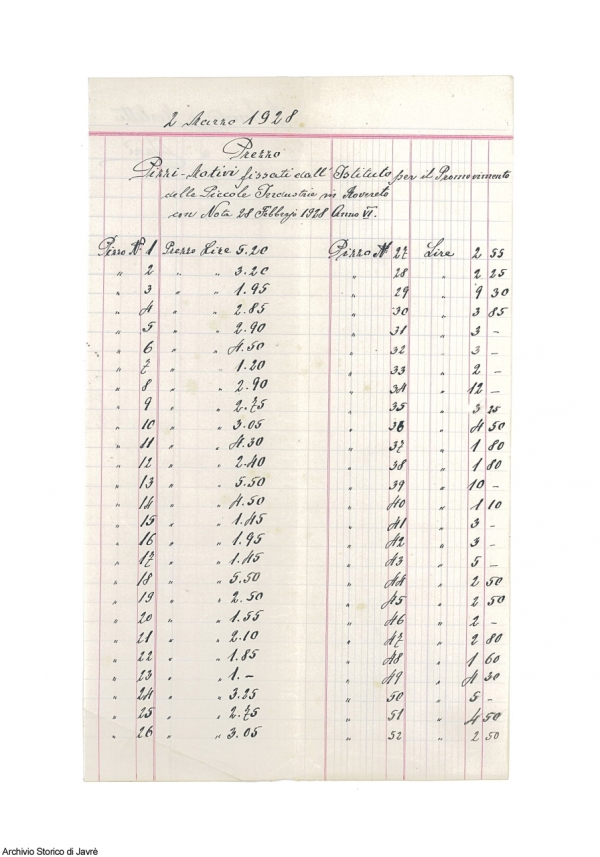 2 Marzo 1928
Prezzo
Pizzi-Motivi fissati dall'Istituto per il Promovimento
delle Piccole Industrie in Rovereto
con Nota 28 Febbrajo 1928 Anno VI.
Pizzo Nº 1 Prezzo Lire 5.20 Pizzo Nº 27 Lire 2 55
" 2 " " 3.20 " 28 " 2 25
" 3 " " 1.95 " 29 " 9 30
" 4 " " 2.85 " 30 " 3 85
" 5 " " 2.90 " 31 " 3 -
" 6 " " 4.50 " 32 " 3 -
" 7 " " 1.20 " 33 " 2 -
" 8 " " 2.90 " 34 " 12 -
" 9 " " 2.75 " 35 " 3 25
" 10 " " 3.05 " 36 " 4 50
" 11 " " 4.30 " 37 " 1 80
" 12 " " 2.40 " 38 " 1 80
" 13 " " 5.50 " 39 " 10 -
" 14 " " 4.50 " 40 " 1 10
" 15 " " 1.45 " 41 " 3 -
" 16 " " 1.95 " 42 " 3 -
" 17 " " 1.45 " 43 " 5 -
" 18 " " 5.50 " 44 " 2 50
" 19 " " 2.50 " 45 " 2 50
" 20 " " 1.55 " 46 " 2 -
" 21 " " 2.10 " 47 " 2 80
" 22 " " 1.85 " 48 " 1 60
" 23 " " 1.- " 49 " 4 30
" 24 " " 3.25 " 50 " 5 -
" 25 " " 2.75 " 51 " 4 50
" 26 " " 3.05 " 52 " 2 50
Archivio Storico di Javrè